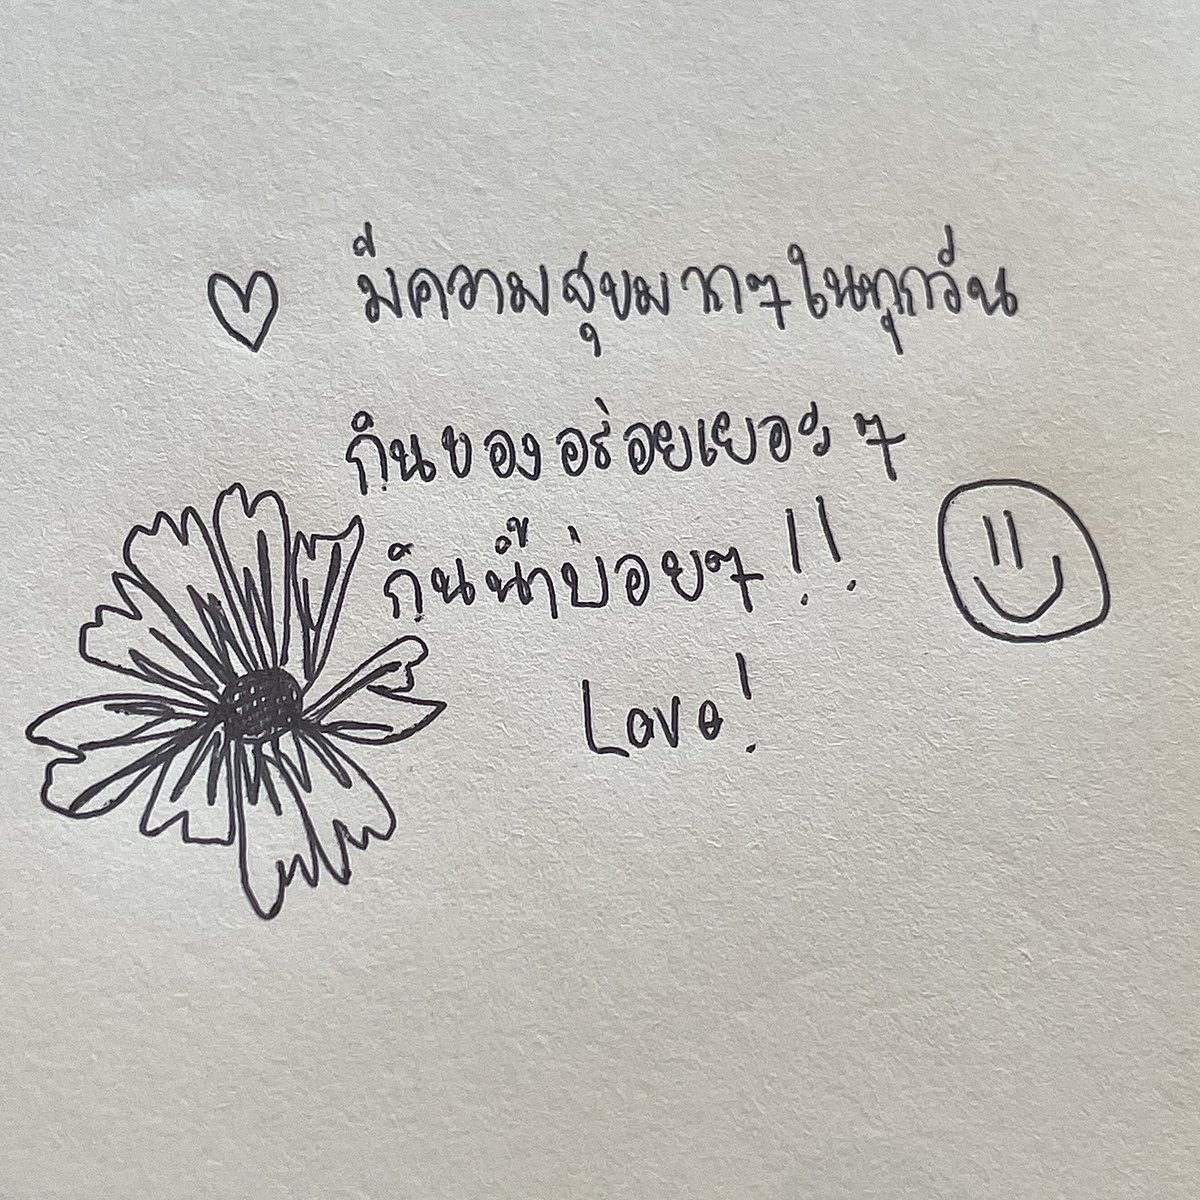 มีความสุขมากๆในทุกวัน
กินของอร่อยเยอะๆ
กินน้ำบ่อยๆ!!
Love!